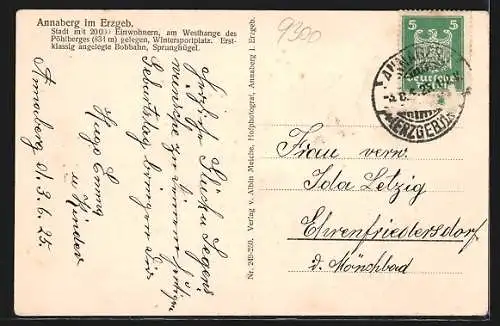 Annaberg im Erzgeb.
Stadt mit 20000 Einwohnern, am Westhange des
Pöhlberges (831 m) gelegen, Wintersportplatz. Erst-
klassig angelegte Bobbahn, Sprunghügel.
9300
Annaberg d. 3.6.25
Herzliche Glück u. Segens
wünsche zu Deinem heutigen
Geburtstag bringen Dir
Hugo Emmy
u. Kinder
Nr. 249-250. Verlag v. Albin Meiche, Hofphotograf, Annaberg i. Erzgeb.
5 5
ANNABERG
(ERZGEB)
Frau verw.
Ida Letzig
Ehrenfriedersdorf
d. Mönchbad